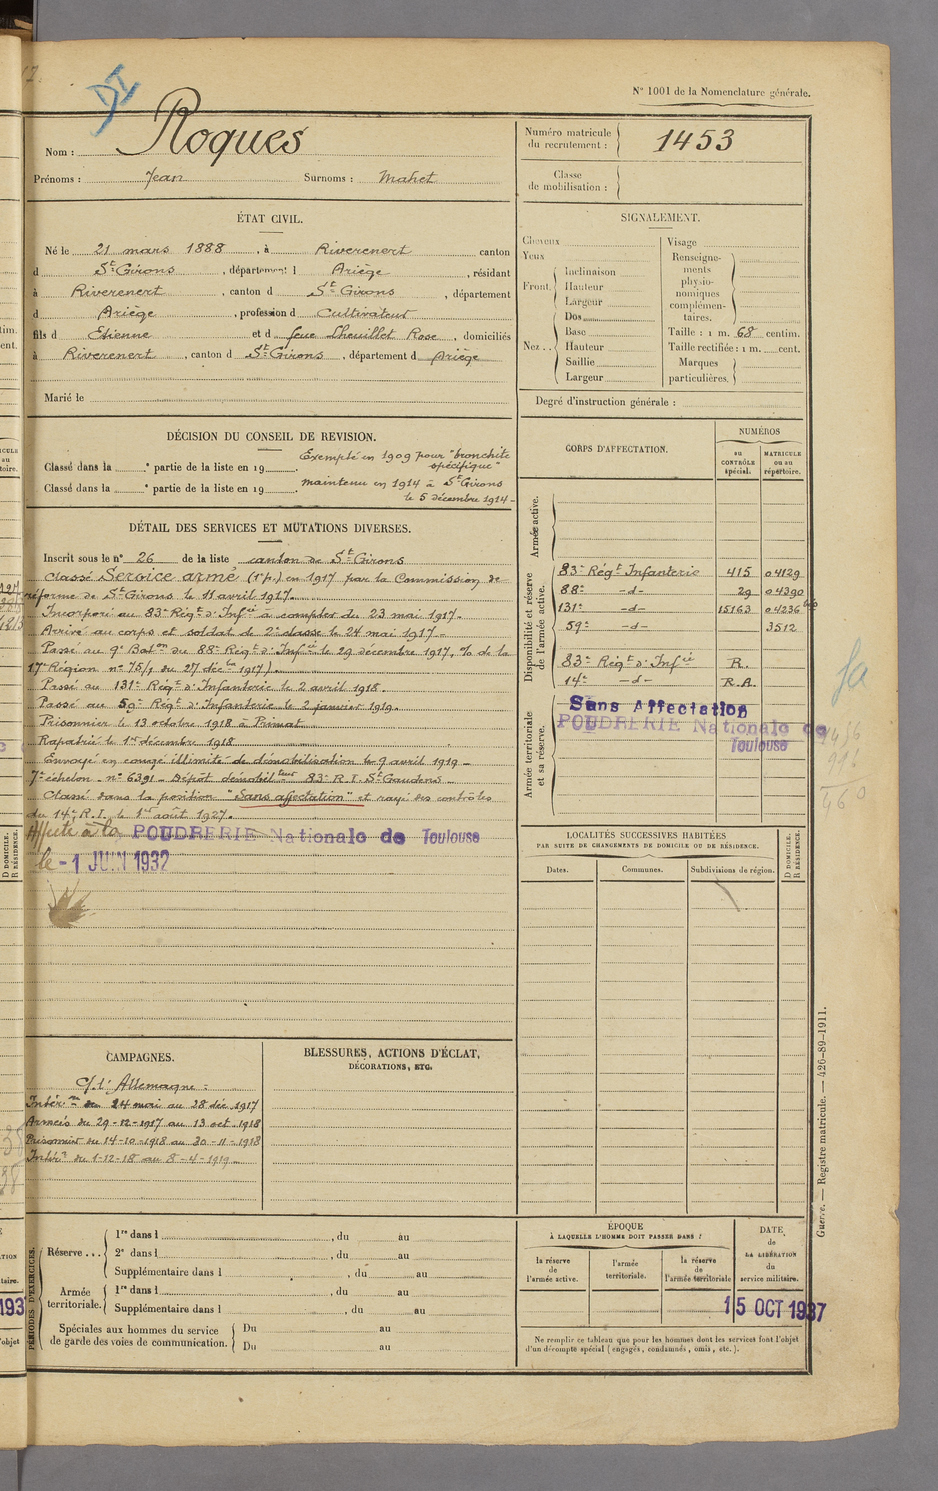 N° 1001 de la Nomenclature générale.
Nom : Roques
Prénoms : Jean Surnoms : Mahet
Numéro matricule du recrutement : 1453
Classe de mobilisation :
ÉTAT CIVIL.
Né le 21 mars 1888, à Riverenert canton
d St Girons, département d Ariège, résidant
à Riverenert, canton d St Girons, département
d Ariège, profession d Cultivateur
fils d Etienne et d feue Lheuillet Rose, domiciliés
à Riverenert, canton d St Girons, département d Ariège
Marié le
SIGNALEMENT.
Cheveux
Yeux
Front. Inclinaison
Hauteur
Largeur
Nez. Dos
Base
Hauteur
Saillie
Largeur
Visage
Renseignements physionomiques complémentaires.
Taille : 1 m. 68 centim.
Taille rectifiée : 1 m. cent.
Marques particulières.
Degré d'instruction générale :
DÉCISION DU CONSEIL DE REVISION.
Exempté en 1909 pour "bronchite spécifique"
Classé dans la e partie de la liste en 19
maintenu en 1914 à St Girons
Classé dans la e partie de la liste en 19
le 5 décembre 1914-
DÉTAIL DES SERVICES ET MUTATIONS DIVERSES.
Inscrit sous le n° 26 de la liste canton de St Girons
Classé Service armé (1e p.) en 1917 par la Commission de
réforme de St Girons le 11 avril 1917.
Incorporé au 83e Régt d'Infie à compter du 23 mai 1917.
Arrivé au corps et soldat de 2e classe le 24 mai 1917-
Passé au 9e Baton du 88e Régt d'Infie le 29 décembre 1917, % de la
17e Région n° 75/1 du 27 décbre 1917).
Passé au 131e Régt d'Infanterie le 2 avril 1918.
Passé au 59e Régt d'Infanterie le 2 janvier 1919.
Prisonnier le 13 octobre 1918 à Primat
Rapatrié le 1er décembre 1918
Envoyé en congé illimité de démobilisation le 9 avril 1919-
7e échelon - n° 6391 - Dépôt démobilteur 83e R.I. St Gaudens
Classé dans la position "Sans affectation" et rayé des contrôles
du 14e R.I. le 1er août 1927.
Affecté à la POUDRERIE Nationale de Toulouse
le -1 JUIN 1932
CORPS D'AFFECTATION.
NUMÉROS
au CONTRÔLE spécial.
MATRICULE ou au répertoire.
Armée active.
Disponibilité et réserve de l'armée active.
83e Régt Infanterie 415 04129
88e -d- 29 04390
131e -d- 15163 04236
59e -d- 3512
83e Régt d'Infie R.
14e -d- R.A.
Armée territoriale et sa réserve.
Sans Affectation
POUDRERIE Nationale de
Toulouse
LOCALITÉS SUCCESSIVES HABITÉES
PAR SUITE DE CHANGEMENTS DE DOMICILE OU DE RÉSIDENCE.
Dates.
Communes.
Subdivisions de région.
D DOMICILE.
R RÉSIDENCE.
CAMPAGNES.
C/ l'Allemagne :
Intérr du 24 mai au 28 déc 1917
Armées du 29-12-1917 au 13 oct 1918
Prisonnier du 14-10-1918 au 30-11-1918
Intérr du 1-12-18 au 8-4-1919-
BLESSURES, ACTIONS D'ÉCLAT,
DÉCORATIONS, ETC.
PÉRIODES D'EXERCICES.
Réserve... 1re dans l , du au
2e dans l , du au
Supplémentaire dans l , du au
Armée territoriale. 1re dans l , du au
Supplémentaire dans l , du au
Spéciales aux hommes du service de garde des voies de communication. Du au
Du au
ÉPOQUE
À LAQUELLE L'HOMME DOIT PASSER DANS :
la réserve de l'armée active.
l'armée territoriale.
la réserve de l'armée territoriale
DATE de LA LIBÉRATION du service militaire.
15 OCT 1937
Ne remplir ce tableau que pour les hommes dont les services font l'objet
d'un décompte spécial (engagés, condamnés, omis, etc.).
Guerre. — Registre matricule. — 426-89-1911.